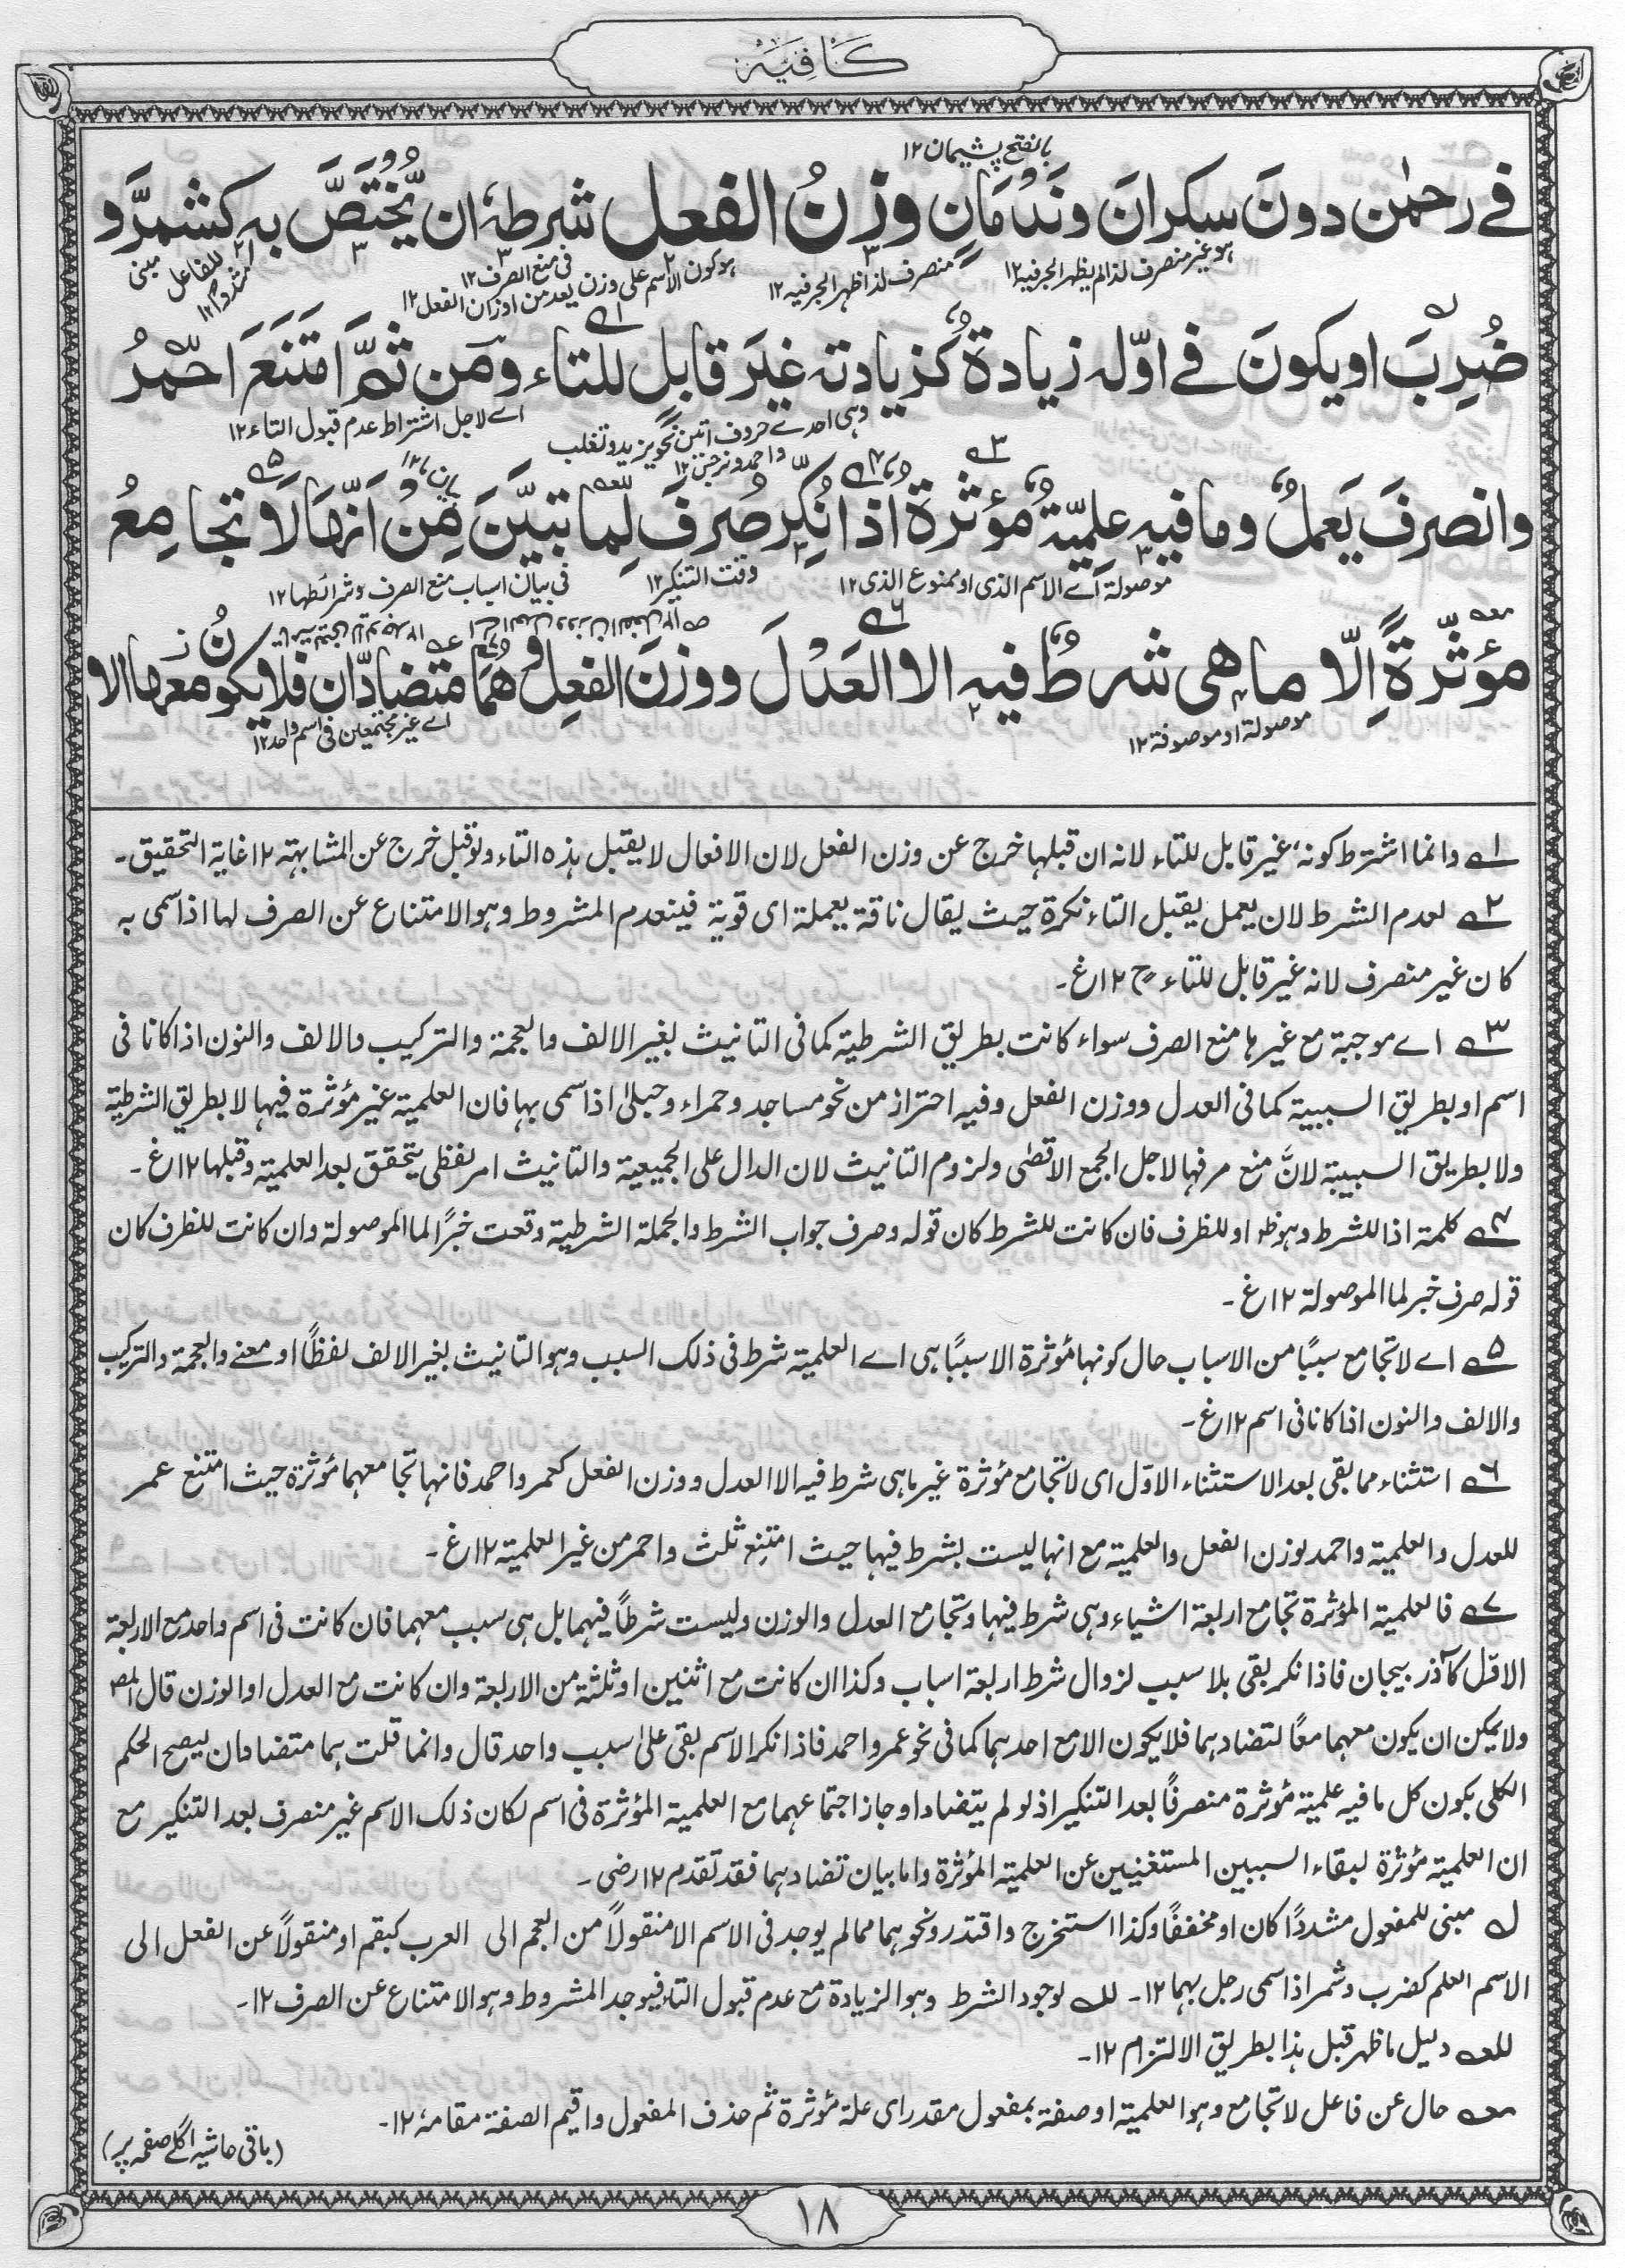 كَافِيَه
بالفتح پشیمان ۱۲
فے رحمٰن دونَ سكرانَ ونَدْمَانٍ وزنُ الفعل شرطهٗ ان يُّختَصَّ به كشمَّرَ و
هو غير منصرف لذا لم يظهر الجر فيه ۱۲
منصرف لذا ظهر الجر فيه ۱۲
هو كون الاسم على وزن يعد من اوزان الفعل ۱۲
فى منع الصرف ۱۲
مبنى للفاعل مشددًا ۱۲
ضُرِبَ او يكونَ فے اوّله زيادةٌ كزيادته غيرَ قابل للتاء ومن ثمَّ امتَنَعَ احمرُ
وهى احدے حروف اتين نحو يزيد وتغلب
واحمد ونرجس ۱۲
اے لاجل اشتراط عدم قبول التاء ۱۲
وانصرفَ يَعملٌ وما فيه علميّةٌ مؤثرةٌ اذا نُكِّرَ صُرفَ لِما تبيَّنَ مِنْ اَنّهَا لَا تجامِعُ
بيان ما ۱۲
موصولة اے الاسم الذى او ممنوع الذى ۱۲
وقت التنكير ۱۲
فى بيان اسباب منع الصرف وشرائطها ۱۲
مؤثّرةً اِلّا ما هى شرطٌ فيه الا العَدْلَ ووزنَ الفعلِ وهُمَا متضادّان فلا يكونُ معهما الا
موصولة او موصوفة ۱۲
اے غير مجتمعين فى اسم واحد ۱۲
۱ وانما اشترط كونهٗ غير قابل للتاء لانه ان قبلها خرج عن وزن الفعل لان الافعال لا يقبل هذه التاء ولو قبل خرج عن المشابهة ۱۲ غاية التحقيق۔
۲ لعدم الشرط لان يعمل يقبل التاء نكرة حيث يقال ناقة يعملة اى قوية فينعدم المشروط وهو الامتناع عن الصرف لها اذا سمى به
كان غير منصرف لانه غير قابل للتاء ح ۱۲ غ۔
۳ اے موجبة مع غيرها منع الصرف سواء كانت بطريق الشرطية كما فى التانيث بغير الالف والعجمة والتركيب والالف والنون اذا كانا فى
اسم او بطريق السببية كما فى العدل ووزن الفعل وفيه احتراز من نحو مساجد وحمراء وحبلىٰ اذا سمى بها فان العلمية غير مؤثرة فيها لا بطريق الشرطية
ولا بطريق السببية لانَّ منع صرفها لاجل الجمع الاقصٰى ولزوم التانيث لان الدال على الجمعية والتانيث امر لفظى يتحقق بعد العلمية وقبلها ۱۲ غ۔
۴ كلمة اذا للشرط وهو ظ او للظرف فان كانت للشرط كان قوله وصرف جواب الشرط والجملة الشرطية وقعت خبرًا لما الموصولة وان كانت للظرف كان
قوله صرف خبر لما الموصولة ۱۲ غ۔
۵ اے لا تجامع سببًا من الاسباب حال كونها مؤثرة الا سببًا هى اے العلمية شرط فى ذلك السبب وهو التانيث بغير الالف لفظًا او معنے والعجمة والتركيب
والالف والنون اذا كانا فى اسم ۱۲ غ۔
۶ استثناء مما بقى بعد الاستثناء الاوّل اى لا تجامع مؤثرة غير ما هى شرط فيه الا العدل ووزن الفعل كعمر واحمد فانها تجامعهما مؤثرة حيث امتنع عمر
للعدل والعلمية واحمد لوزن الفعل والعلمية مع انها ليست بشرط فيها حيث امتنع ثلث واحمر من غير العلمية ۱۲ غ۔
۷ فالعلمية المؤثرة تجامع اربعة اشياء وهى شرط فيها وتجامع العدل والوزن وليست شرطًا فيهما بل هى سبب معهما فان كانت فى اسم واحد مع الاربعة
الاوّل كآذر بيجان فاذا نكر بقى بلا سبب لزوال شرط اربعة اسباب وكذا ان كانت مع اثنين او ثلثة من الاربعة وان كانت مع العدل او الوزن قال المصـ
ولا يمكن ان يكون معهما معًا لتضادهما فلا يكون الا مع احدهما كما فى نحو عمر واحمد فاذا نكر الاسم بقى علىٰ سبب واحد قال وانما قلت هما متضادان ليصح الحكم
الكلى بكون كل ما فيه علمية مؤثرة منصرفًا بعد التنكير اذ لو لم يتضادا وجاز اجتماعهما مع العلمية المؤثرة فى اسم لكان ذلك الاسم غير منصرف بعد التنكير مع
ان العلمية مؤثرة لبقاء السببين المستغنيين عن العلمية المؤثرة واما بيان تضادهما فقد تقدم ۱۲ رضى۔
ل مبنى للمفعول مشددًا كان او مخففًا وكذا استخرج واقتدر ونحوهما مما لم يوجد فى الاسم الا منقولاً من العجم الى العرب كبقم او منقولاً عن الفعل الى
الاسم العلم كضرب وشمر اذا سمى رجل بهما ۱۲۔ لله لوجود الشرط وهو الزيادة مع عدم قبول التاء فيوجد المشروط وهو الامتناع عن الصرف ۱۲۔
للعه دليل ما ظهر قبل هذا بطريق الالتزام ۱۲۔
معه حال عن فاعل لا تجامع وهو العلمية او صفة بمفعول مقدر اى علة مؤثرة ثم حذف المفعول واقيم الصفة مقامهٗ ۱۲۔
(باقى حاشيه اگلے صفحه پر)
۱۸